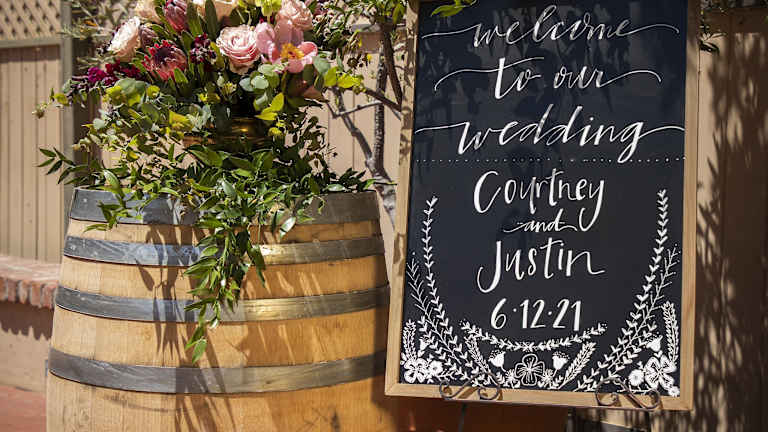 welcome
to our
wedding
Courtney
and
Justin
6·12·21